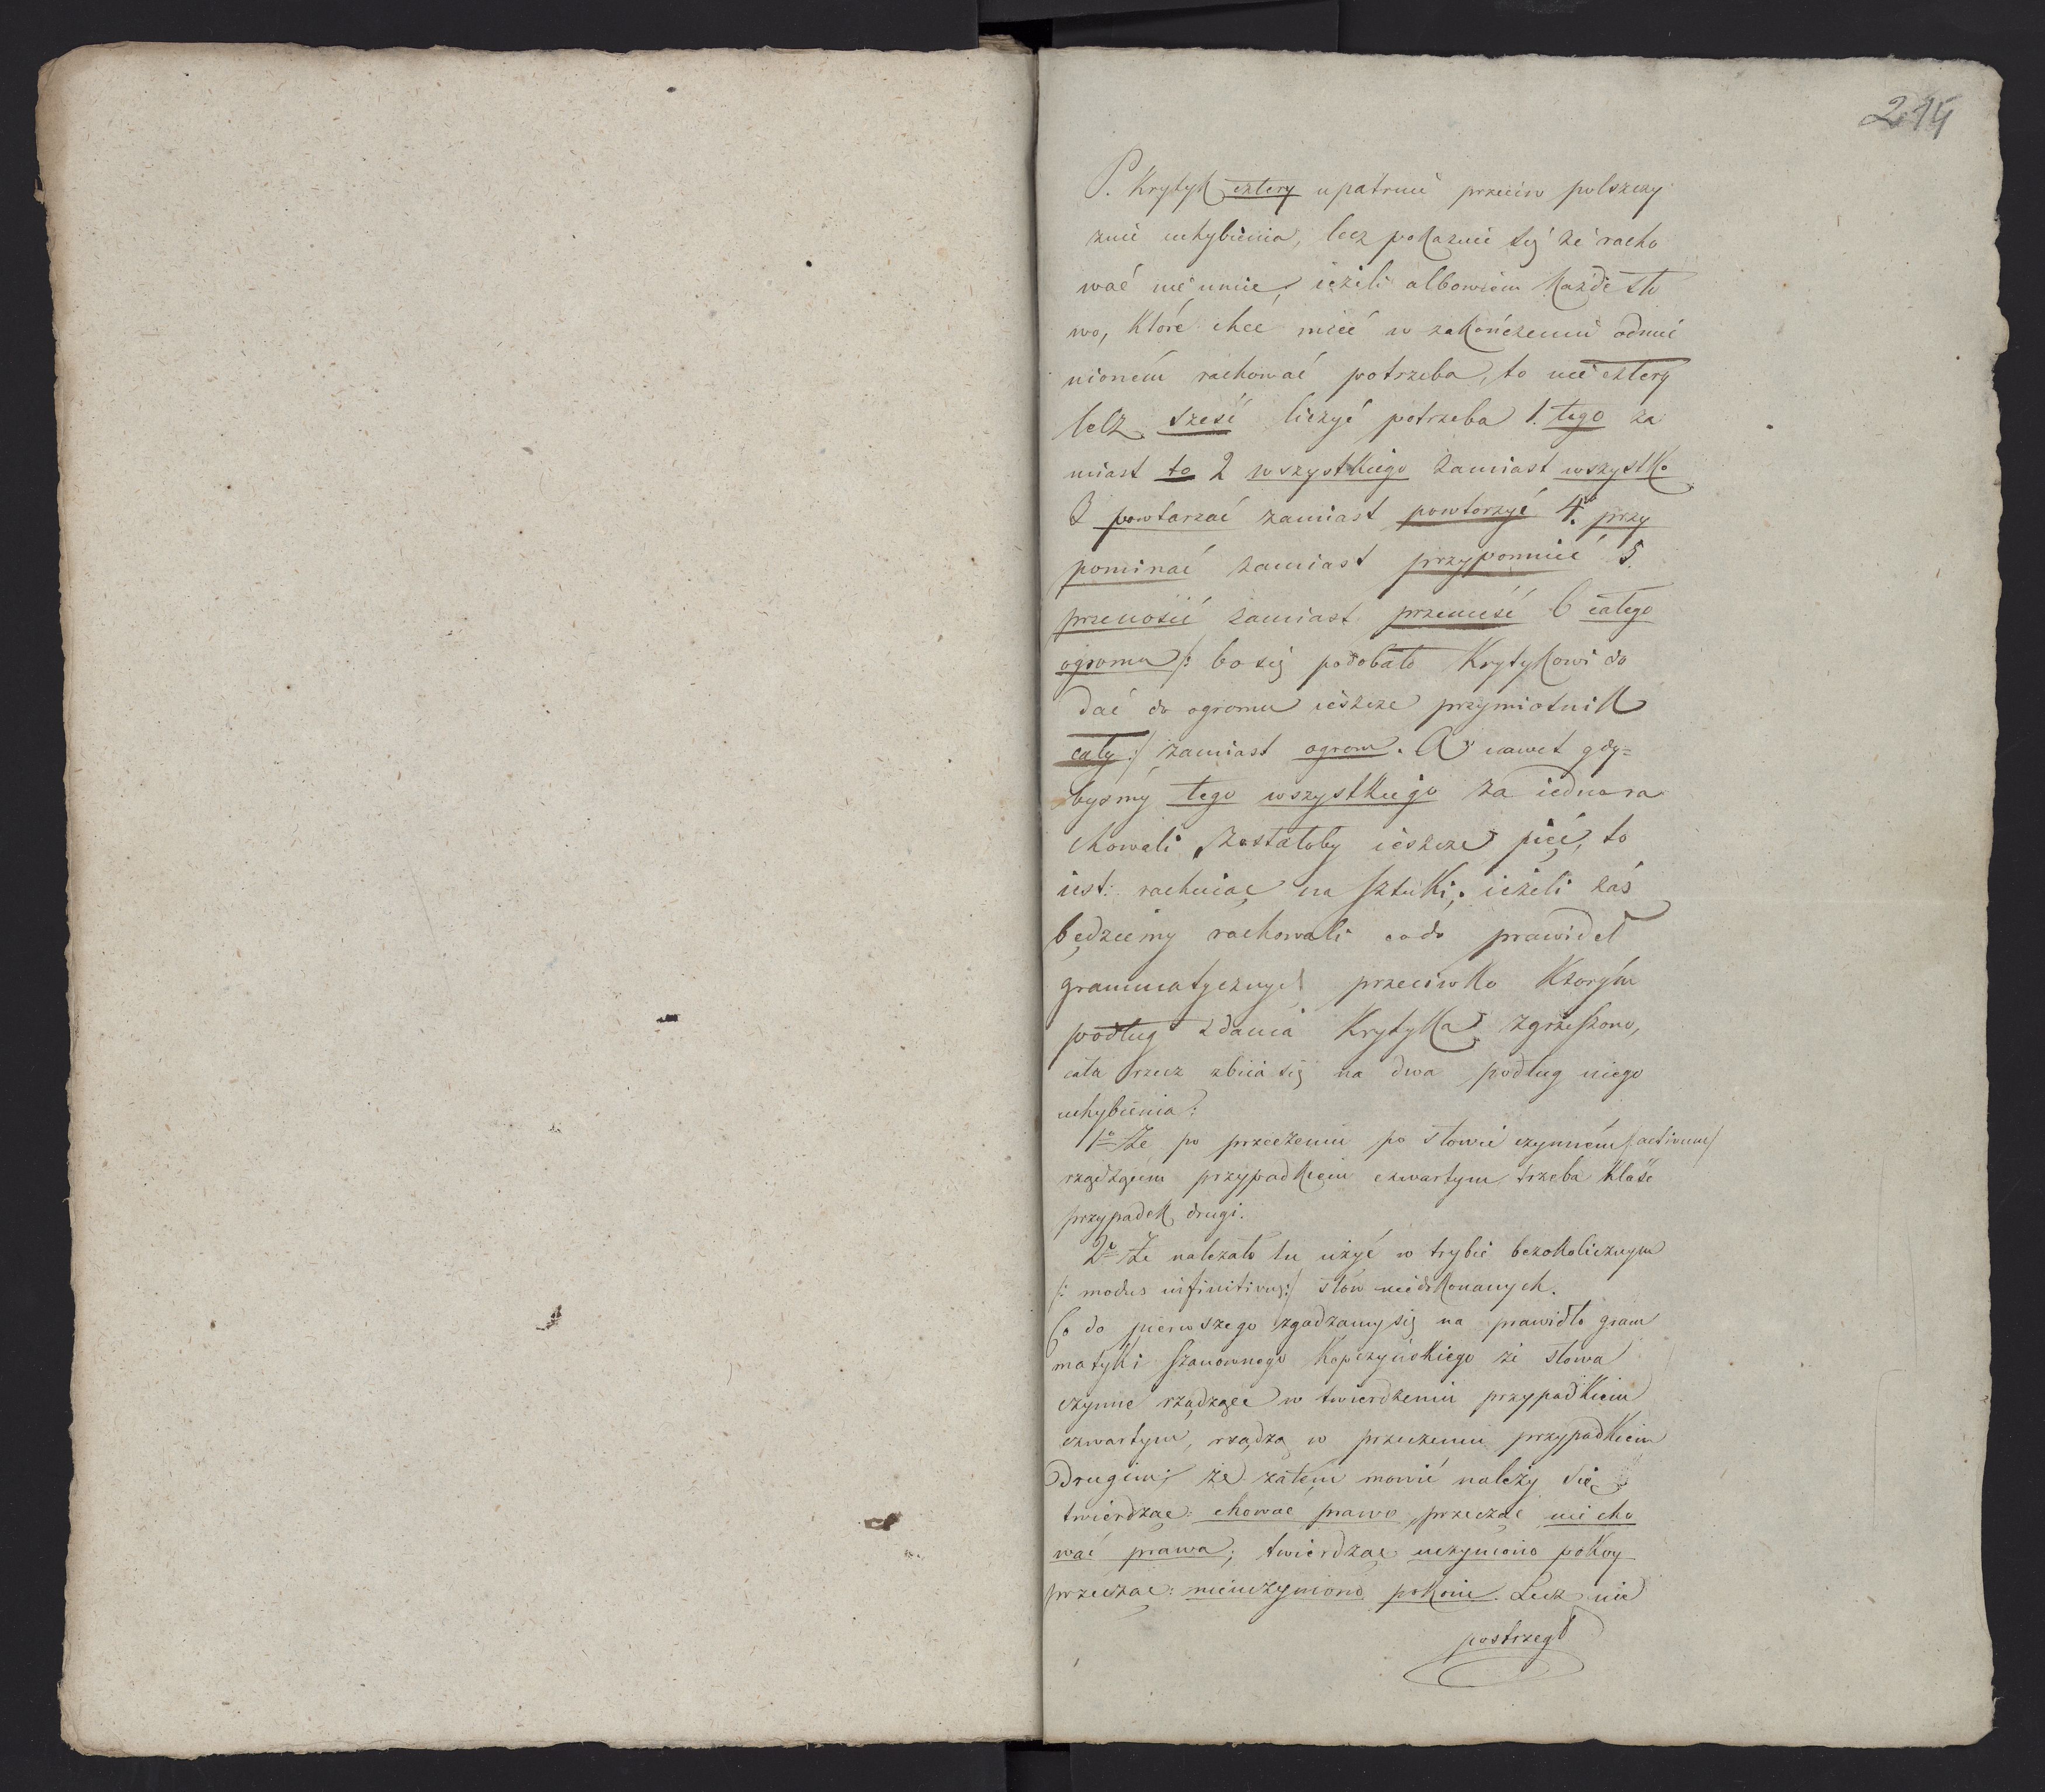 214
P. Krytyk cztery upatruie przeciw polszczy
znie uchybienia, lecz pokazuie się że racho
wać nie umie, ieżeli albowiem każde sło
wo, które chce mieć w zakończeniu odmie
nioném rachować potrzeba, to nie cztery
lecz sześć liczyć potrzeba 1. tego za
miast to 2 wszystkiego zamiast wszystko
3 powtarzać zamiast powtorzyć 4. przy
pominać zamiast przypomnieć 5.
przenosić zamiast przenieść 6 całego
ogromu /: bo się podobało Krytykowi do
dać do ogromu ieszcze przymiotnik
cały :/ zamiast ogrom. A nawet gdy=
bysmy tego wszystkiego za iedno ra
chowali, zostałoby ieszcze pięć, to
iest: rachuiąc na sztuki; ieżeli zaś
będziemy rachowali co do prawideł
grammatycznych przeciwko ktorym
podług zdania Krytyka zgrzeszono,
cała rzecz zbiia się na dwa podług niego
uchybienia:
1o Że po przeczeniu po słowie czynném /:activum/
rządzącém przypadkiem czwartym trzeba kłaść
przypadek drugi.
2o Że należało tu użyć w trybie bezokolicznym
/: modus infinitivus:/ słów niedokonanych.
Co do pierwszego zgadzamy się na prawidło gram
matyki szanownego Kopczyńskiego że słowa
czynne rządzące w twierdzeniu przypadkiem
czwartym, rządzą w przeczeniu przypadkiem
Drugim; że zatém mowić należy się
twierdząc: chować prawo, przecząc nie cho
wać prawa; twierdząc uczyniono pokoy
przecząc: nieuczyniono pokoiu. Lecz nie
postrzegł